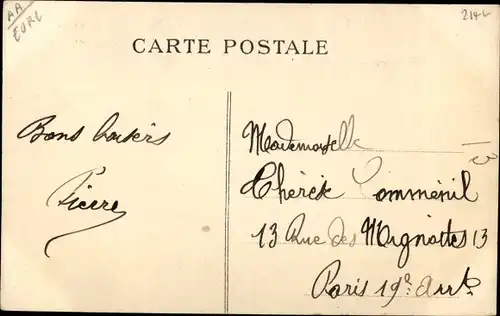 AA
EURE
214L
CARTE POSTALE
Bons baisers
Pierre
Mademoiselle
Thérèse Comménil
13 Rue des Mignottes 13
Paris 19e Arrt